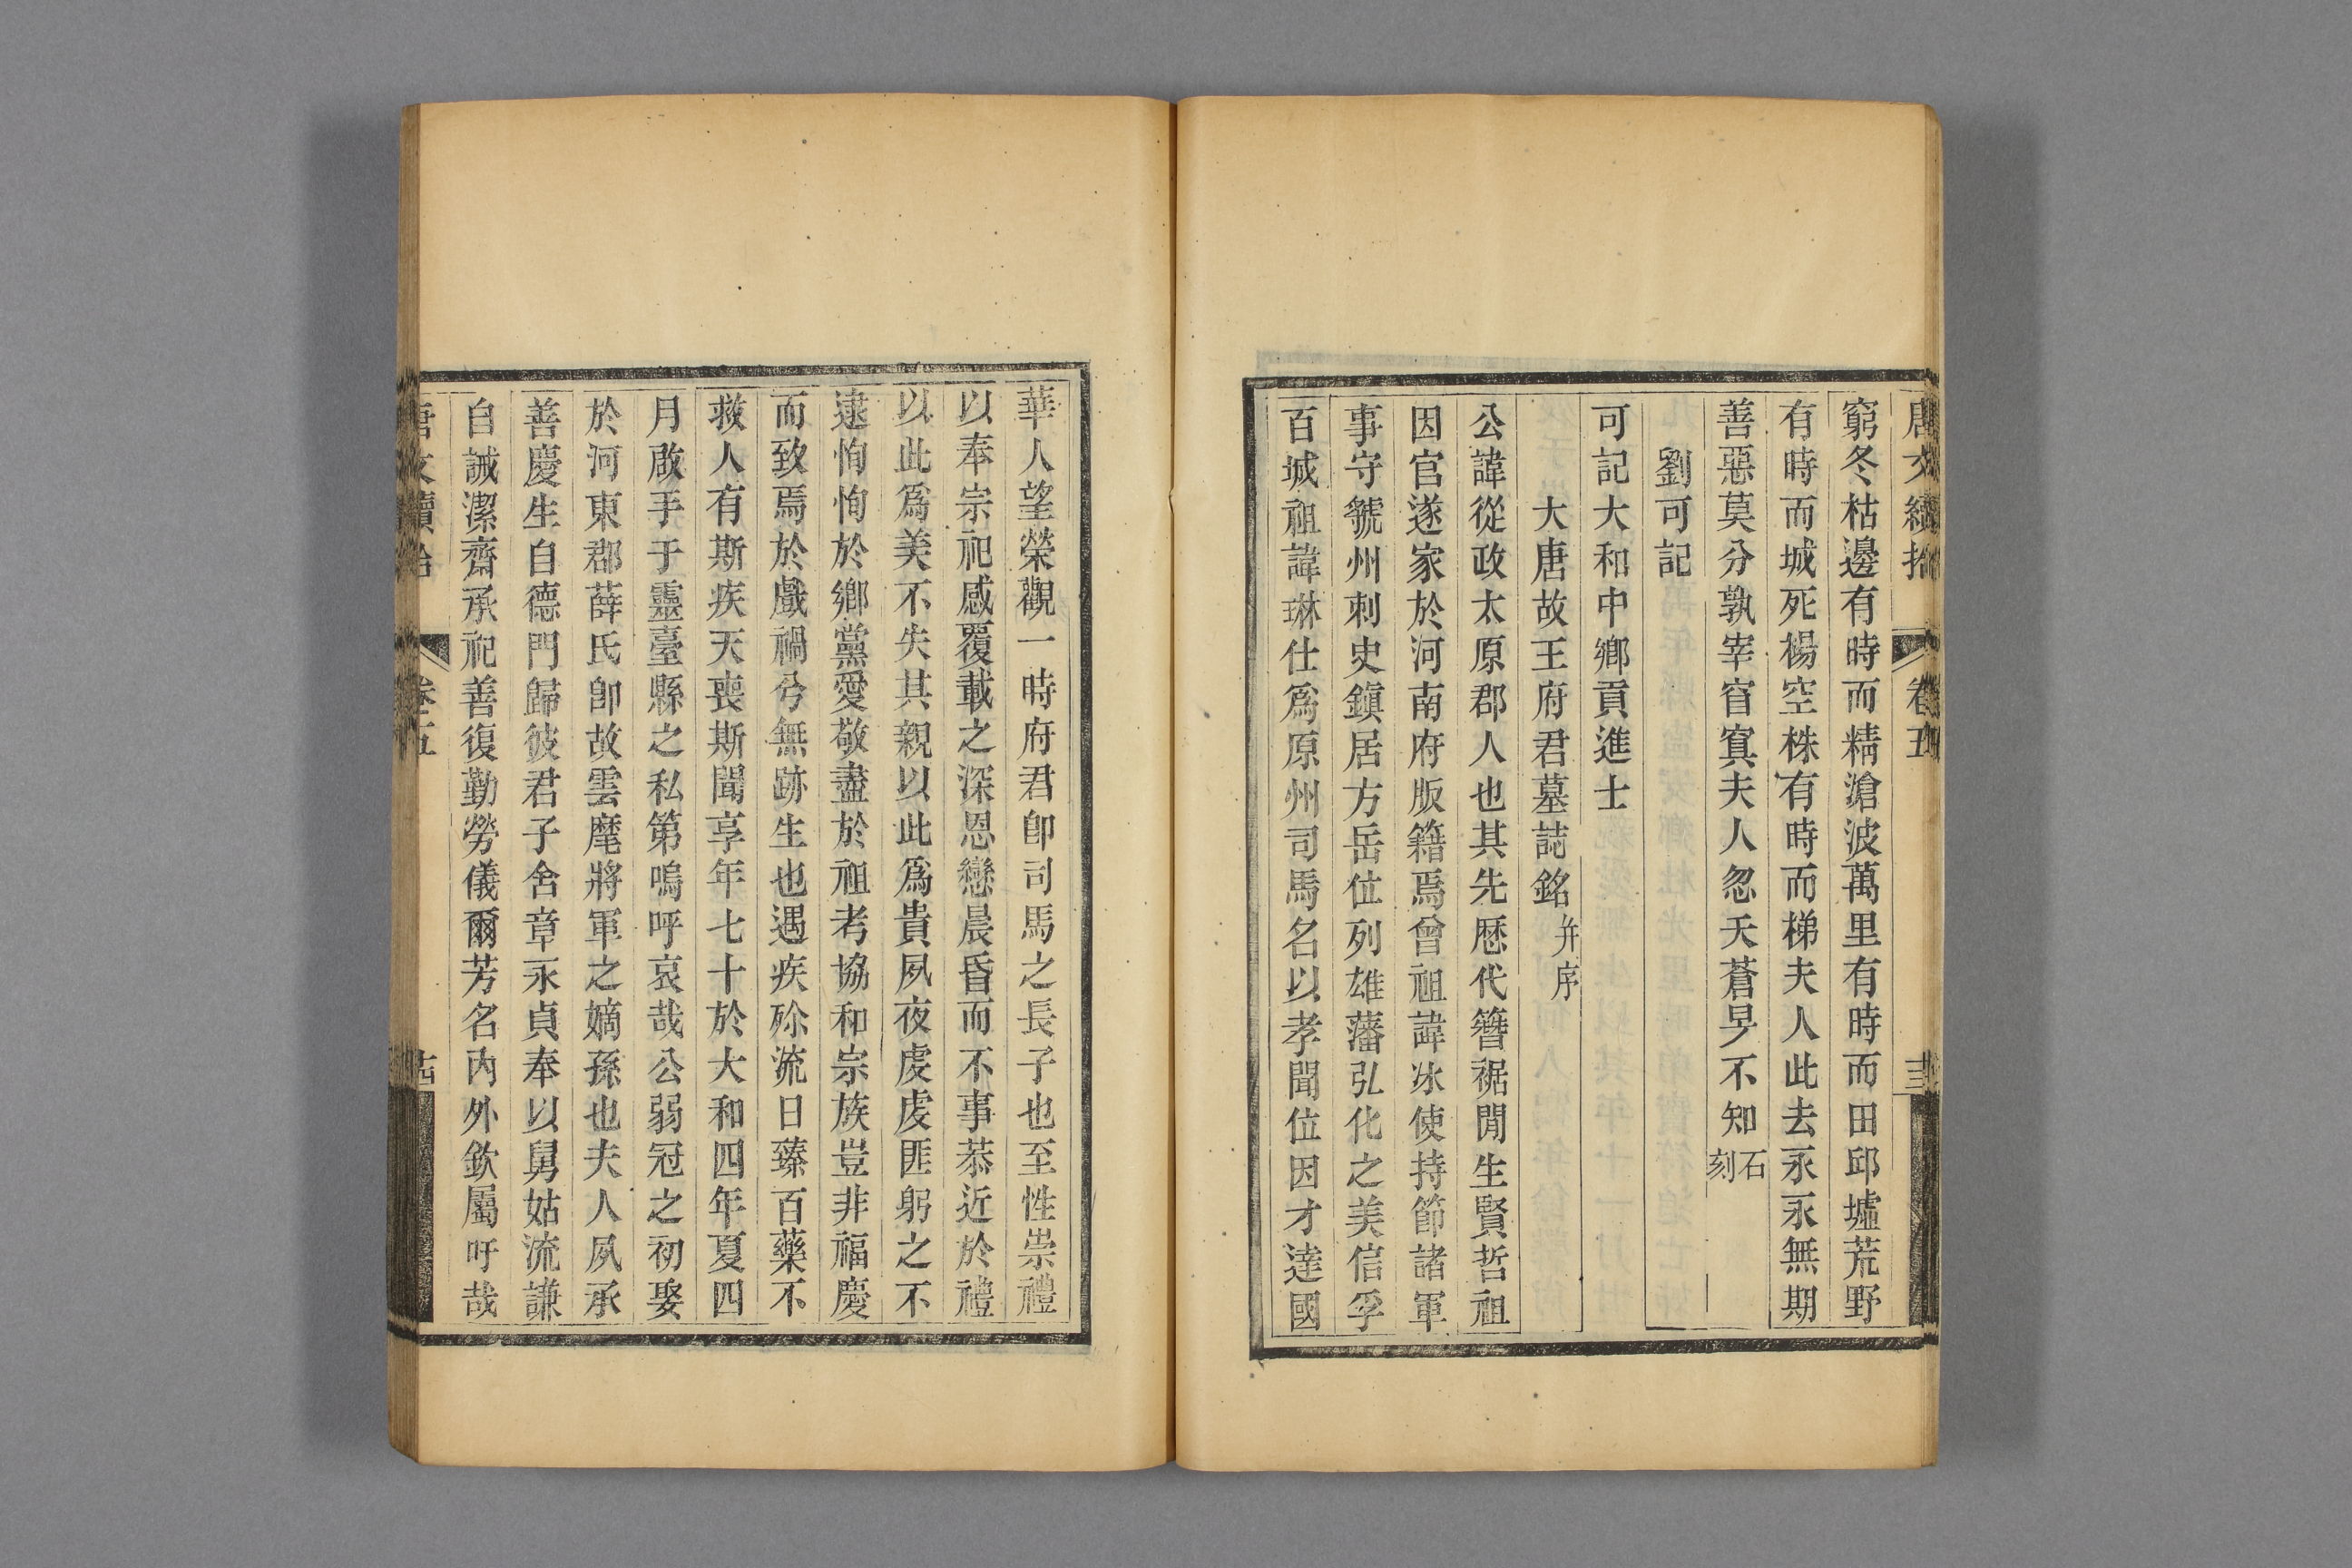 唐文續拾 卷五 十三
窮冬枯邊有時而精滄波萬里有時而田邱墟荒野
有時而城死楊空株有時而梯夫人此去永永無期
善惡莫分孰宰窅寘夫人忽夭蒼旻不知石刻
劉可記
可記大和中鄉貢進士
大唐故王府君墓誌銘并序
公諱從政太原郡人也其先歷代簪裾閒生賢哲祖
因官遂家於河南府版籍焉曾祖諱冰使持節諸軍
事守虢州刺史鎭居方岳位列雄藩弘化之美信孚
百城祖諱琳仕爲原州司馬名以孝聞位因才達國
華人望榮觀一時府君卽司馬之長子也至性崇禮
以奉宗祀感覆載之深恩戀晨昏而不事恭近於禮
以此爲美不失其親以此爲貴夙夜虔虔匪躬之不
逮恂恂於鄉黨愛敬盡於祖考協和宗族豈非福慶
而致焉於戲禍兮無跡生也遇疾殄流日臻百藥不
救人有斯疾天喪斯聞享年七十於大和四年夏四
月啟手于靈臺縣之私第嗚呼哀哉公弱冠之初娶
於河東郡薛氏卽故雲麾將軍之嫡孫也夫人夙承
善慶生自德門歸彼君子舍章永貞奉以舅姑流謙
自誡潔齊承祀善復勤勞儀爾芳名內外欽屬吁哉
唐文續拾 卷五 十四